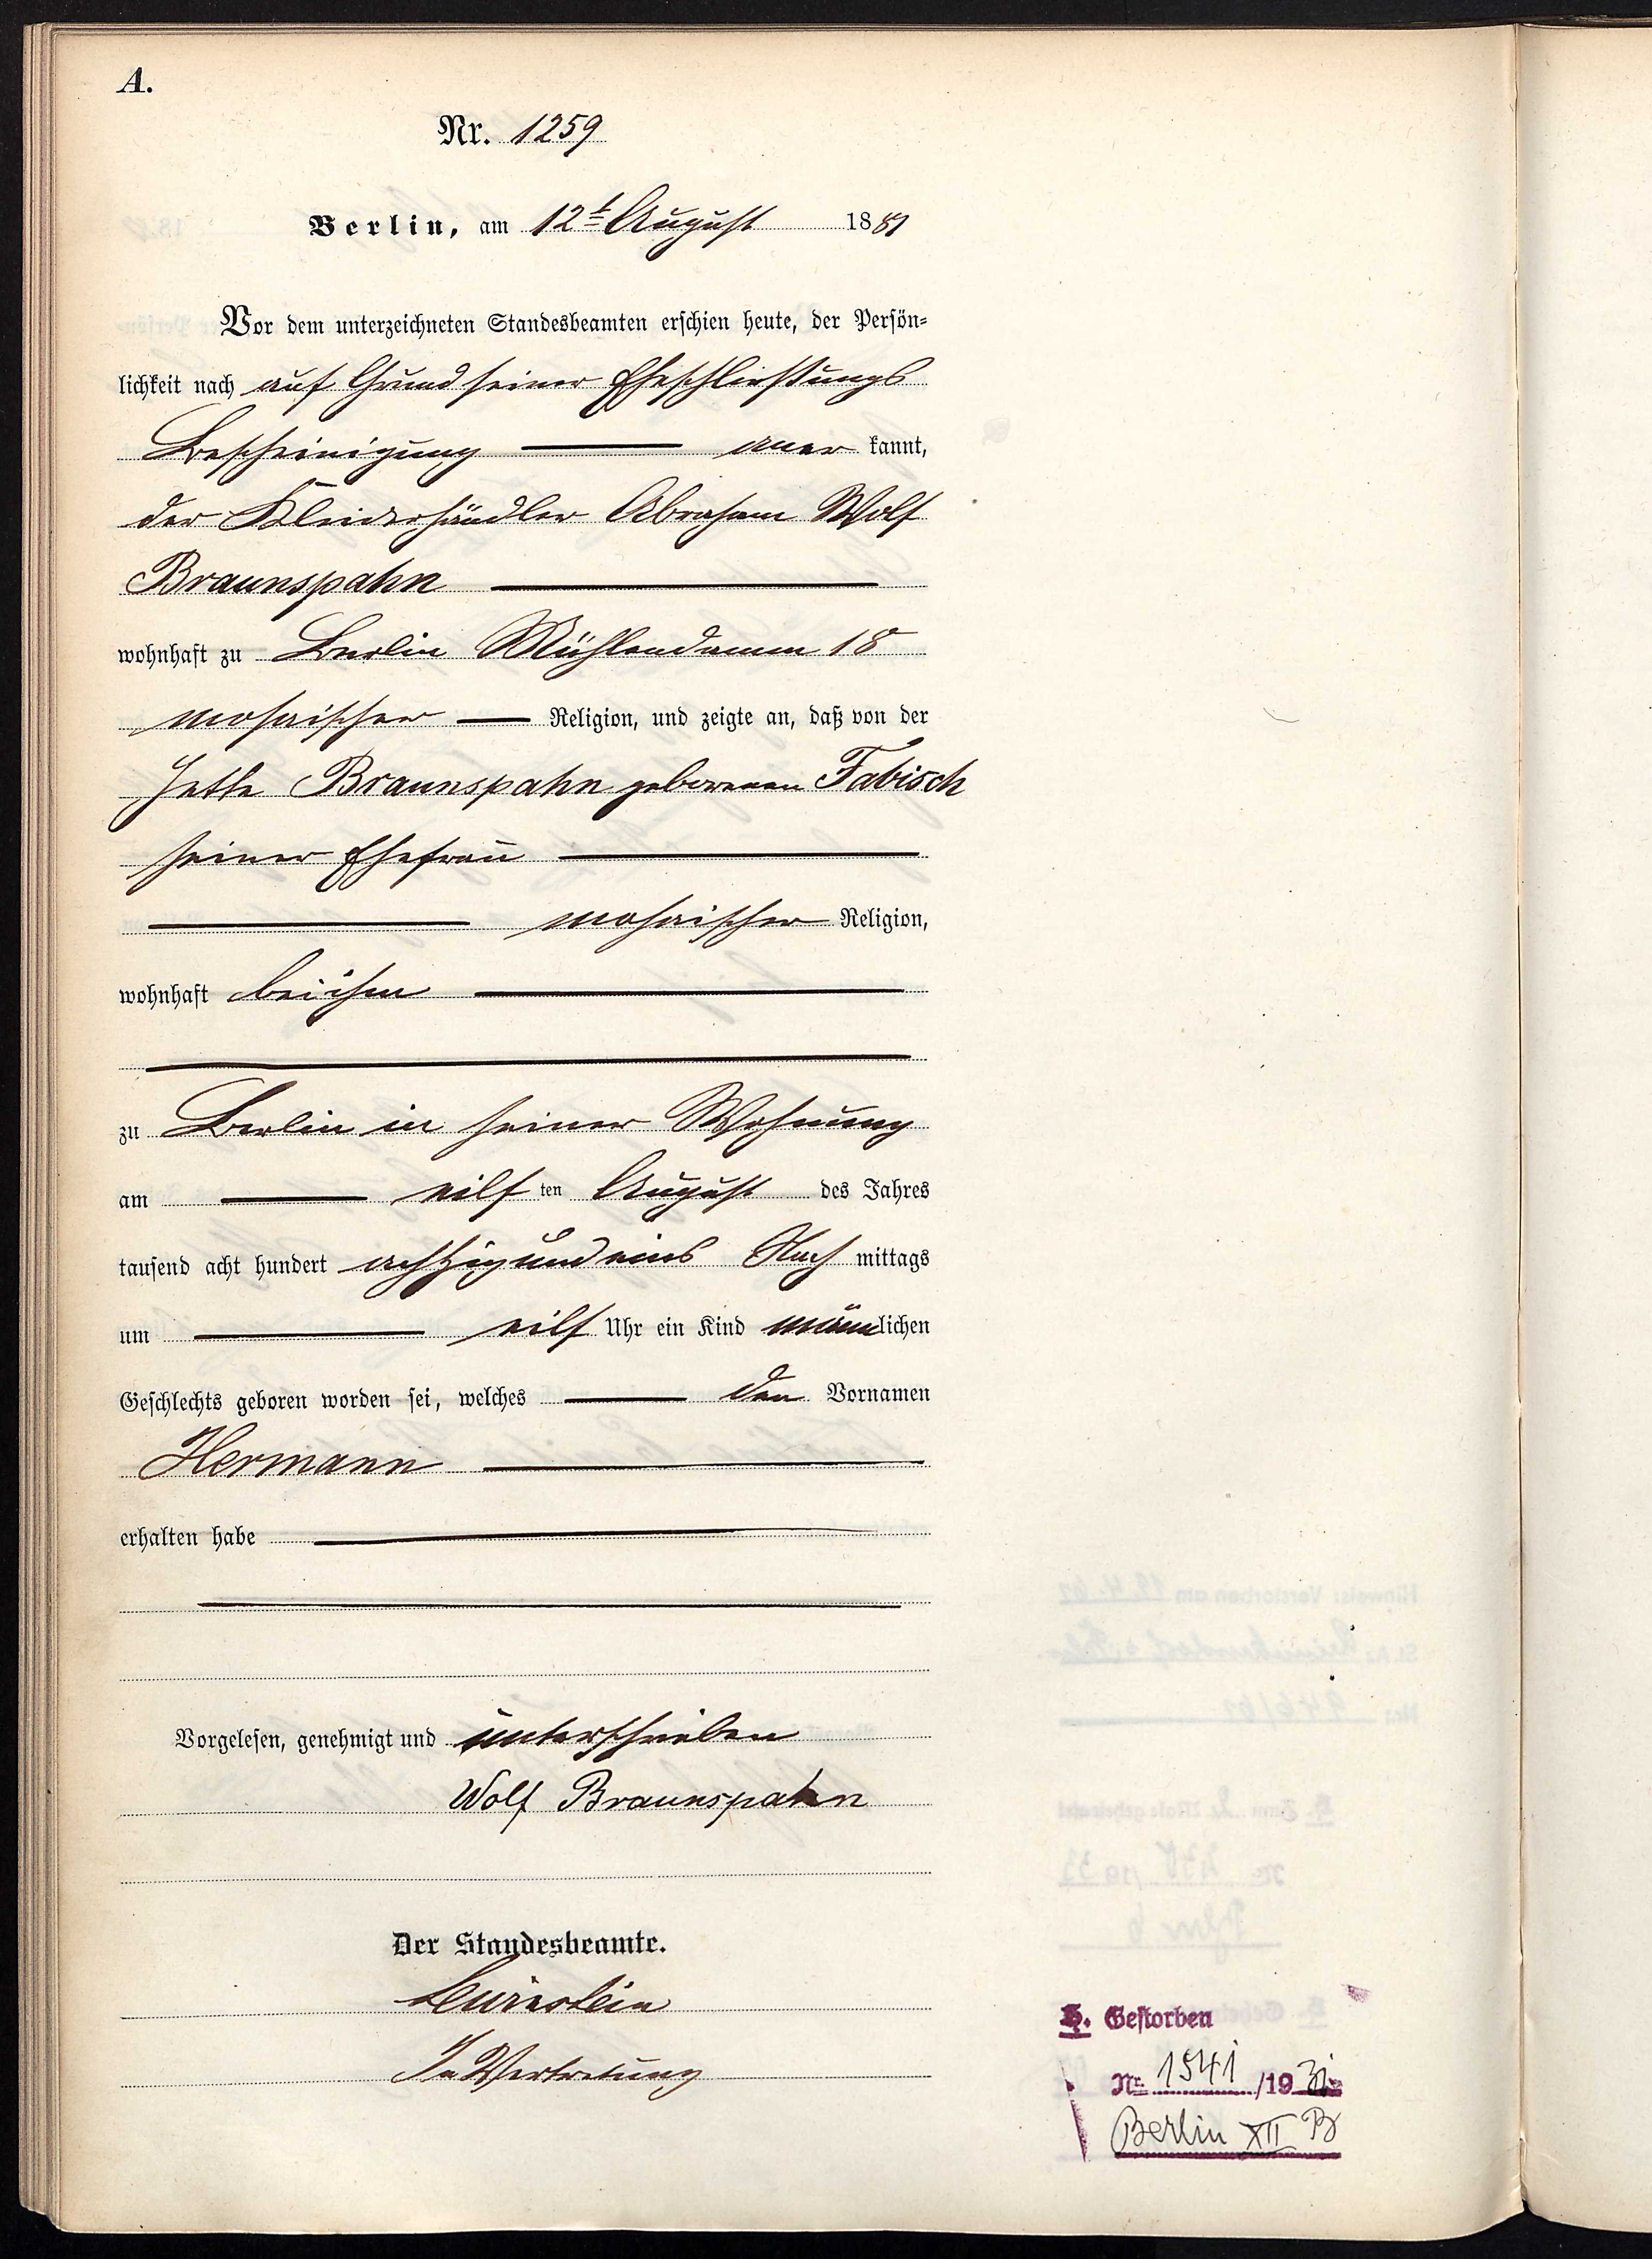 A.
Nr. 1259
Berlin, am 12t August 1881
Vor dem unterzeichneten Standesbeamten erschien heute, der Persön-
lichkeit nach auf Grund seiner Eheschließungs
Bescheinigung aner kannt,
der Kleiderhändler Abraham Wolf
Braunspahn
wohnhaft zu Berlin Mühlendamm 18
mosaischer Religion, und zeigte an, daß von der
Jette Braunspahn geborenen Fabisch
seiner Ehefrau
mosaischer Religion,
wohnhaft bei ihm
zu Berlin in seiner Wohnung
am eilf ten August des Jahres
tausend acht hundert achtzig und eins Nach mittags
um eilf Uhr ein Kind männlichen
Geschlechts geboren worden sei, welches den Vornamen
Hermann
erhalten habe
Vorgelesen, genehmigt und unterschrieben
Wolf Braunspahn
Der Standesbeamte.
In Vertretung
H. Gestorben
Nr. 1541/1931
Berlin XII B